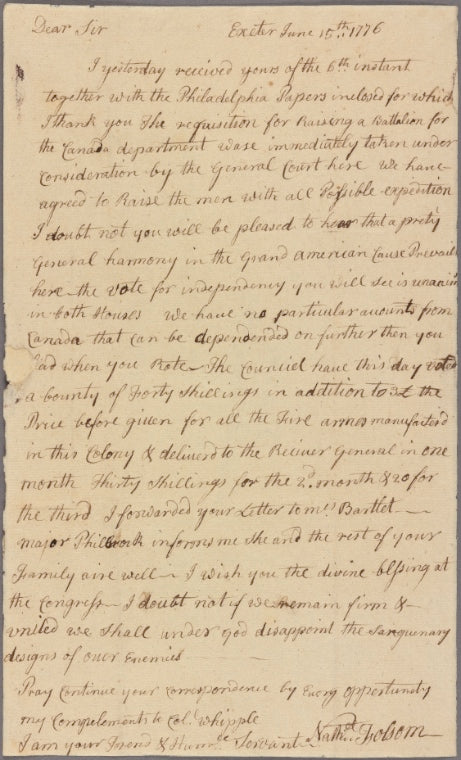 Dear Sir Exeter June 15th. 1776
I yesterday received yours of the 6th instant
together with the Philadelphia Papers inclosed for which
I thank you The requisition for Raising a Battalion for
the Canada department wase immediately taken under
consideration by the General Court here We have
agreed to Raise the men with all Possible expedition
I doubt not you will be pleased to hear that a prety
General harmony in the Grand American Cause Prevails
here the vote for independency you will see is unanim
in both Houses We have no particular acounts from
Canada that can be dependended on further then you
had when you Rote The Councill have this day voted
a bounty of Forty Shillings in addition to 3£ the
Price before given for all the Fire armes manufacterd
in this Colony & deliverd to the Reciver General in one
month Thirty Shillings for the 2d. month & 20 for
the third I forwarded your Letter to mrs Bartlet
major Philbrook informs me She and the rest of your
Family aire well I wish you the divine blssing at
the Congress I doubt not if we Remain firm &
united we Shall under God disappoint the Sanguenary
designs of ouer Enemies
Pray Continue your Correspondence by Every oppertunity
my Complements to Col. Whipple
I am your Friend & Humle Servant Nathl. Folsom